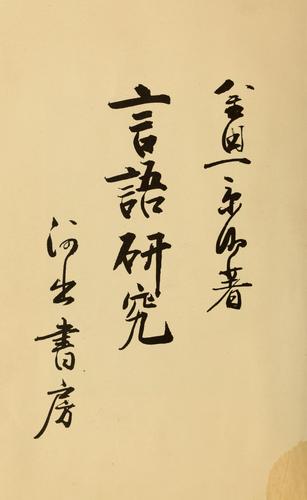 金田一京助著
言語研究
河出書房